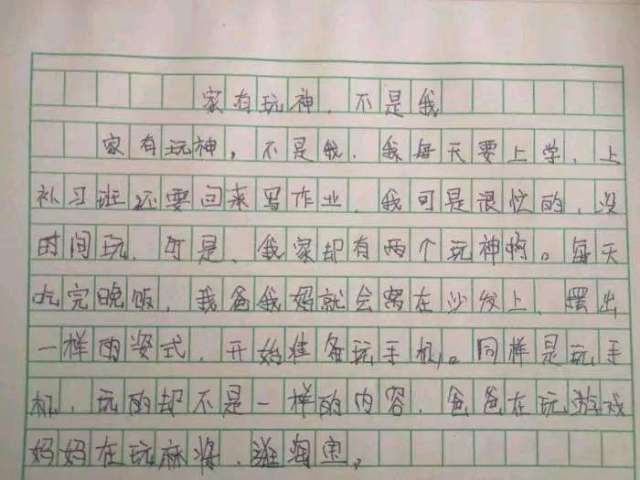 家有玩神，不是我
家有玩神，不是我，我每天要上学，上
补习班还要回来写作业，我可是很忙的，没
时间玩，可是，我家却有两个玩神啊。每天
吃完晚饭，我爸我妈就会窝在沙发上，摆出
一样的姿式，开始准备玩手机。同样是玩手
机，玩的却不是一样的内容，爸爸在玩游戏
妈妈在玩麻将，逛淘宝。